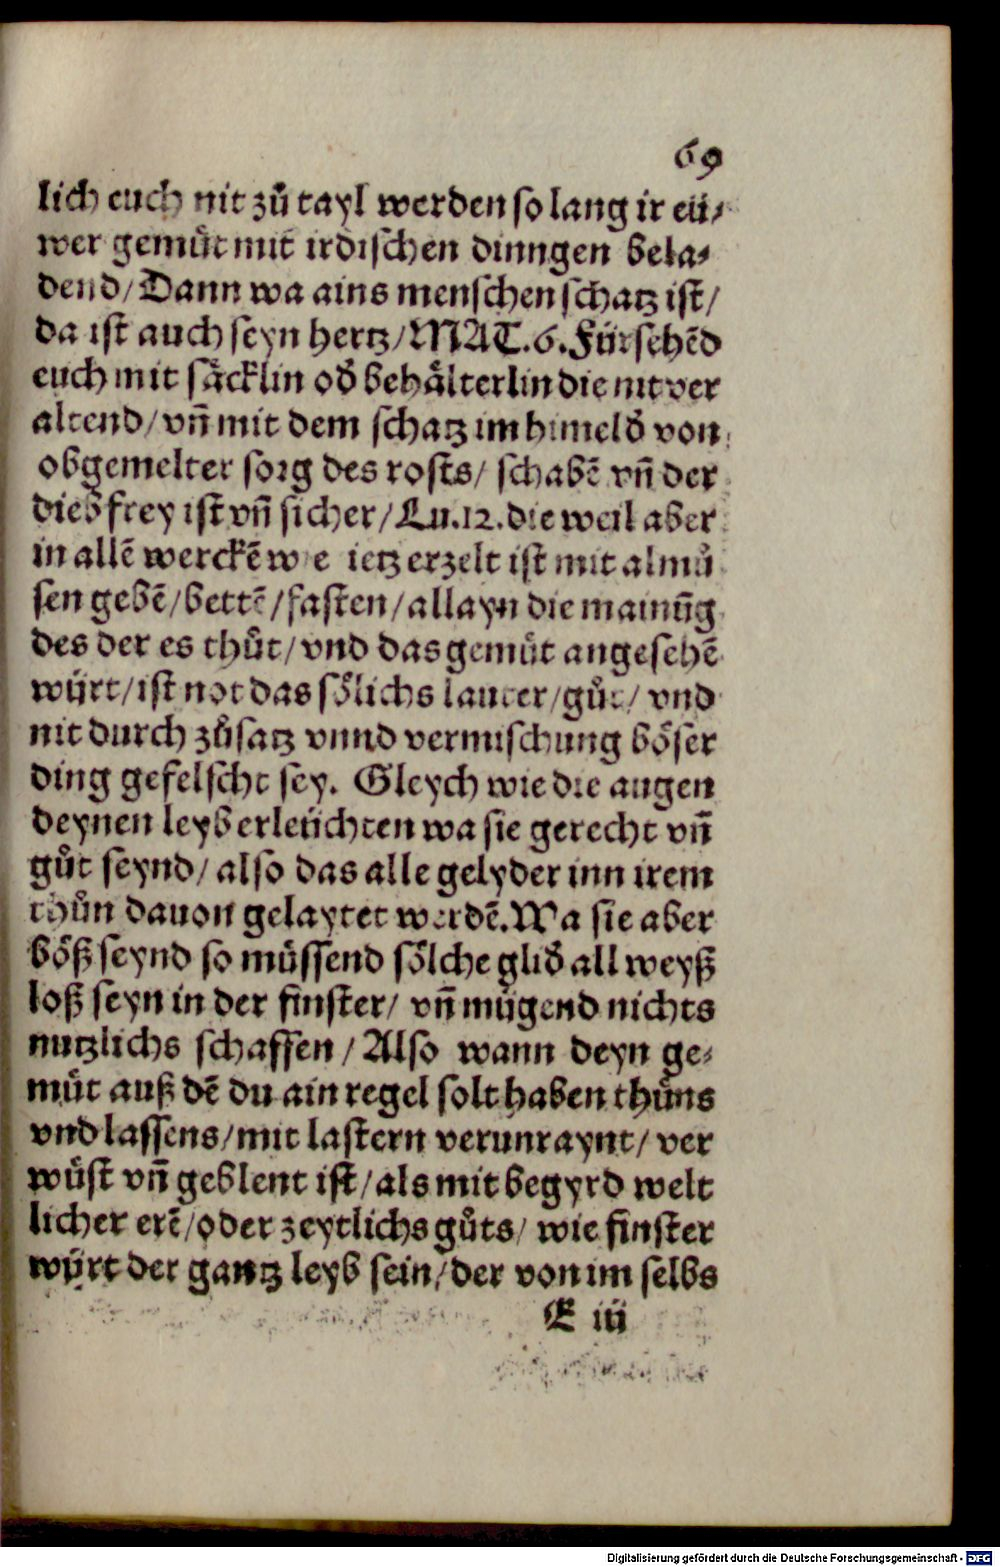 69
lich euch nit zů tayl werden so lang ir eü⸗
wer gemůt mit irdischen dinngen bela⸗
dend/ Dann wa ains menschen schatz ist/
da ist auch seyn hertz/ MAT. 6. Fürsehẽd
euch mit säcklin oď behälterlin die nit ver
altend/ vñ mit dem schatz im himel ď von
obgemelter sorg des rosts/ schabẽ vñ der
dieb frey ist vñ sicher/ Lu. 12. die weil aber
in allẽ werckẽ w e ietz erzelt ist mit almů
sen gebẽ/ bettẽ/ fasten/ allayn die mainũg
des der es thůt/ vnd das gemůt angesehẽ
würt/ ist not das sölichs lauter/ gůt/ vnd
nit durch zůsatz vnnd vermischung böser
ding gefelscht sey. Gleych wie die augen
deynen leyb erleüchten wa sie gerecht vñ
gůt seynd/ also das alle gelyder inn irem
thůn dauon gelaytet werdẽ. Wa sie aber
böß seynd so müssend sölche gliď all weyß
loß seyn in der finster/ vñ mügend nichts
nutzlichs schaffen/ Also wann deyn ge⸗
müt auß dẽ du ain regel solt haben thůns
vnd lassens/ mit lastern verunraynt/ ver
wüst vñ geblent ist/ als mit begyrd welt
licher erẽ/ oder zeytlichs gůts/ wie finster
würt der gantz leyb sein/ der von im selbs
E iij
Digitalisierung gefördert durch die Deutsche Forschungsgemeinschaft - DFG